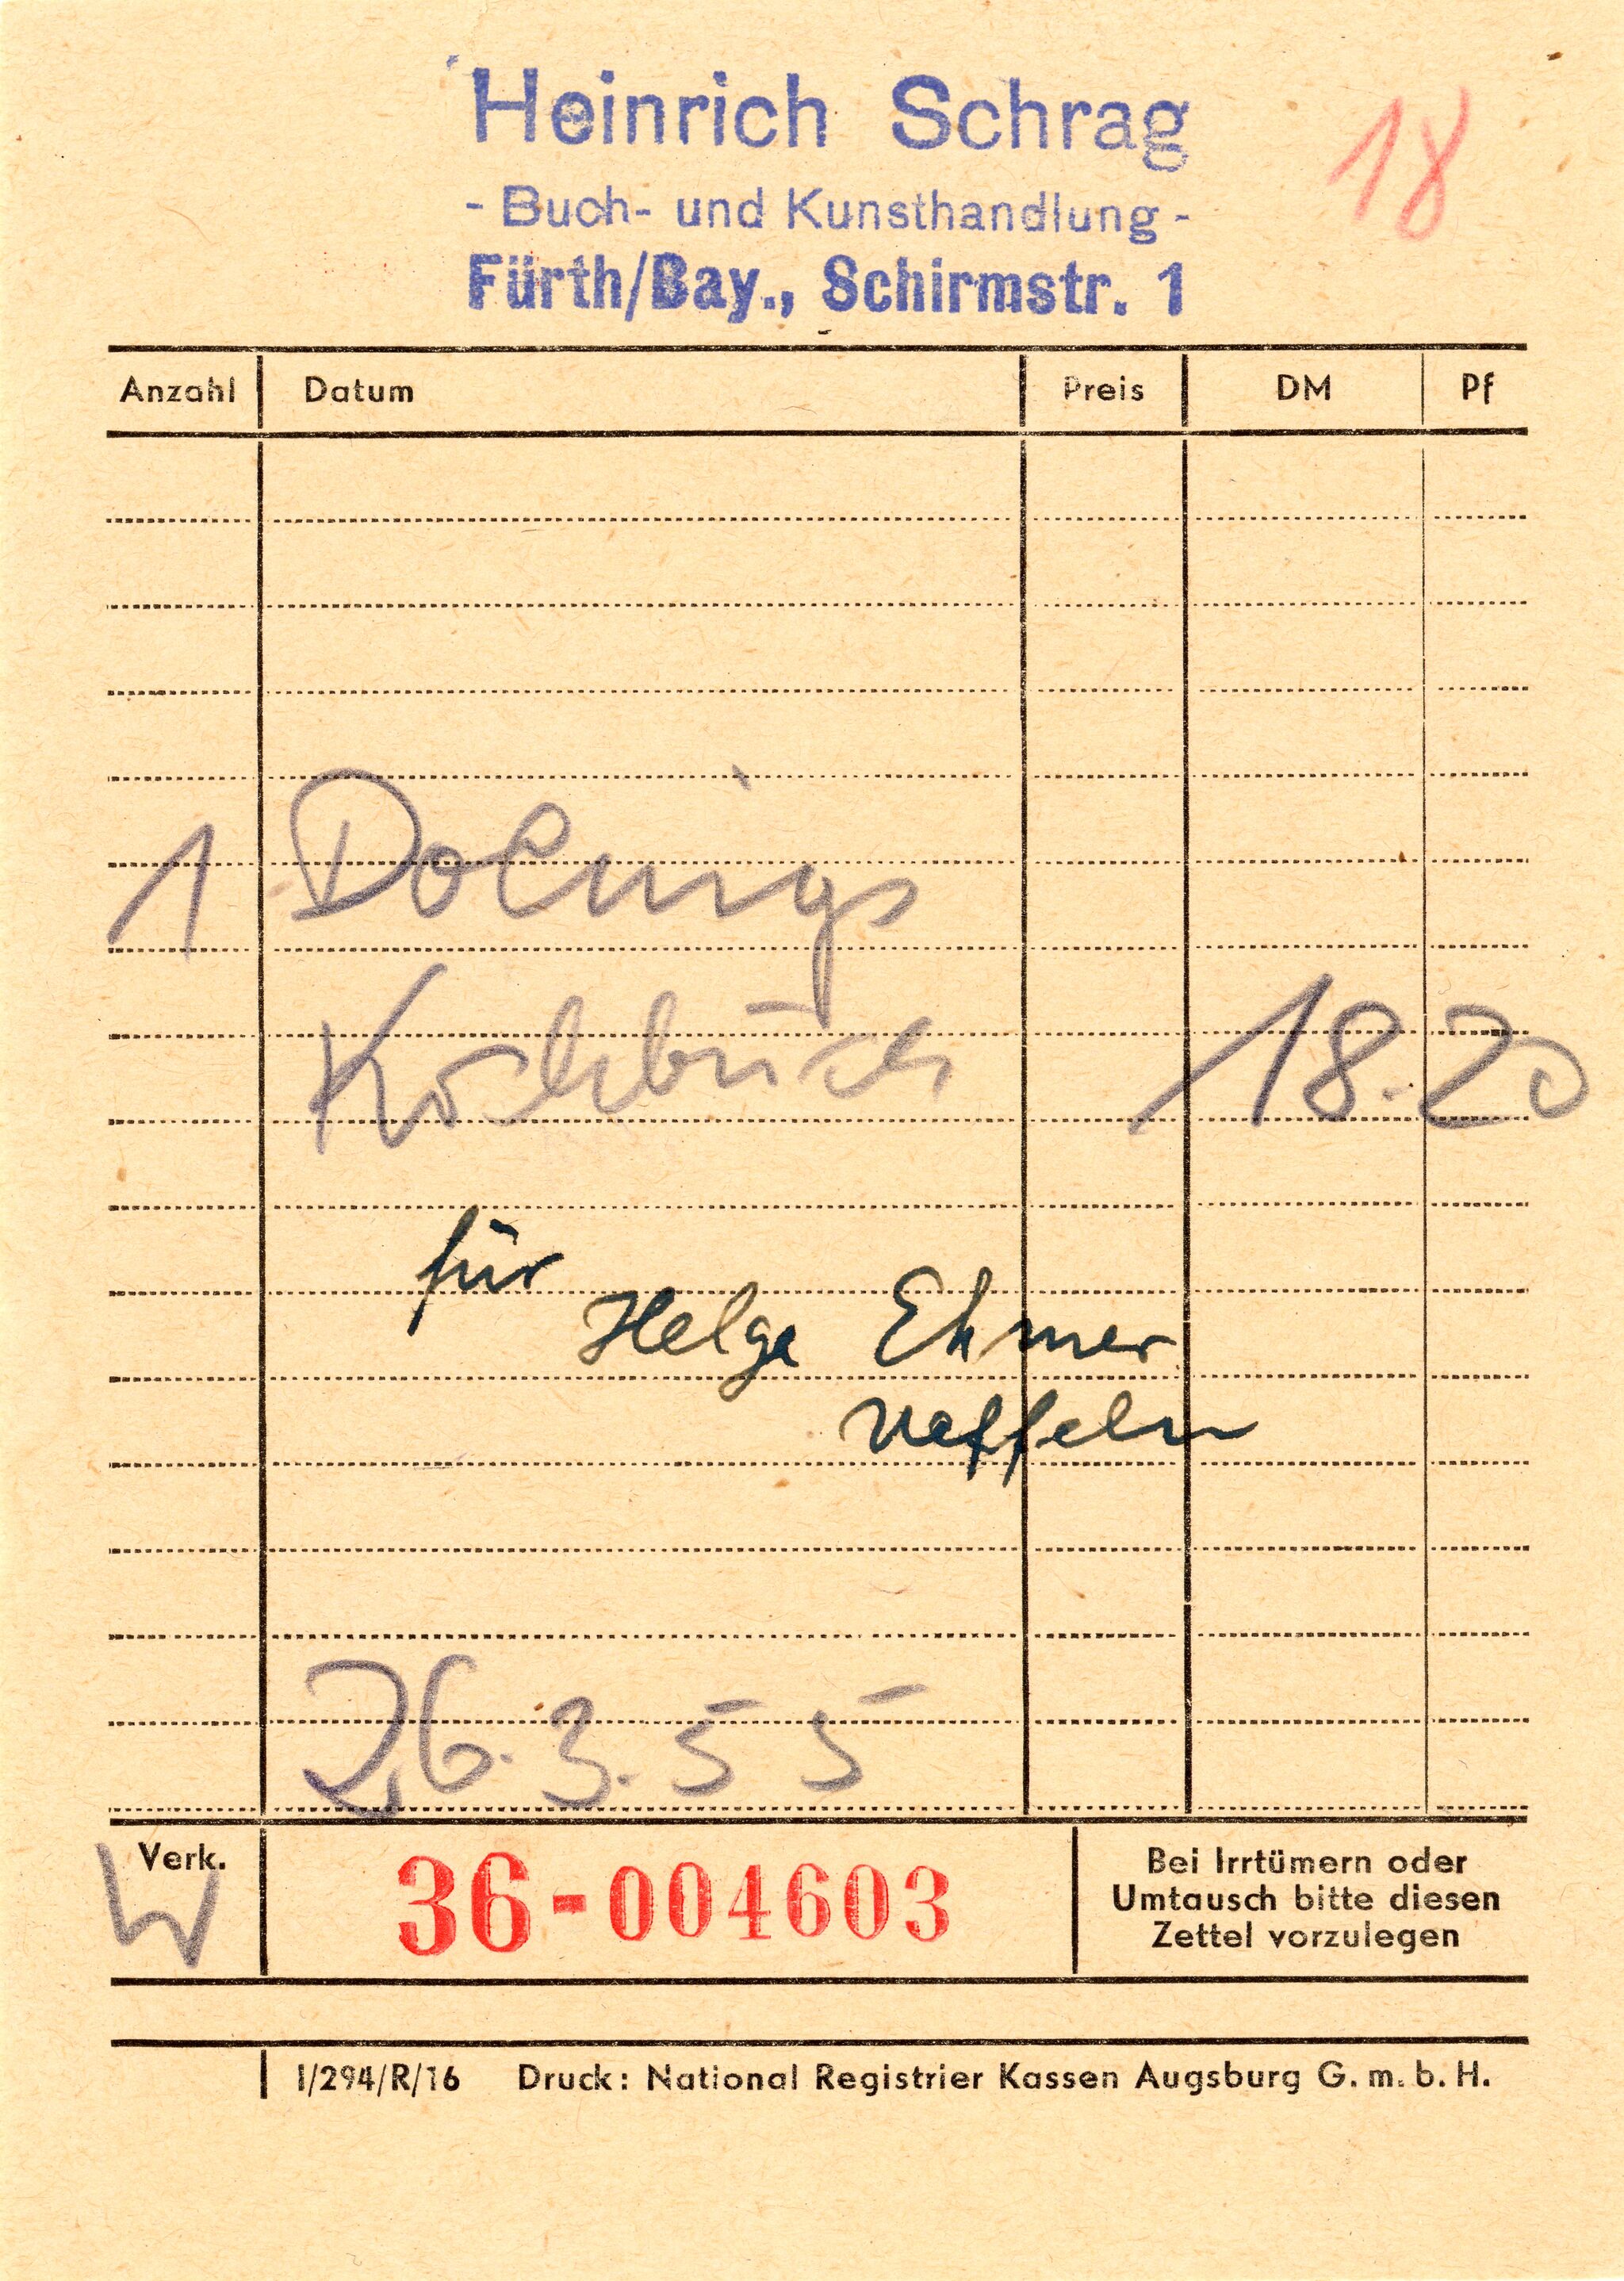 Heinrich Schrag
18
- Buch- und Kunsthandlung -
Fürth/Bay., Schirmstr. 1
Anzahl Datum Preis DM Pf
1
Kochbuch 18.20
für
Helge Ehmer
26.3.55
Verk. 36-004603 Bei Irrtümern oder
Umtausch bitte diesen
Zettel vorzulegen
W
I/294/R/16 Druck: National Registrier Kassen Augsburg G. m. b. H.